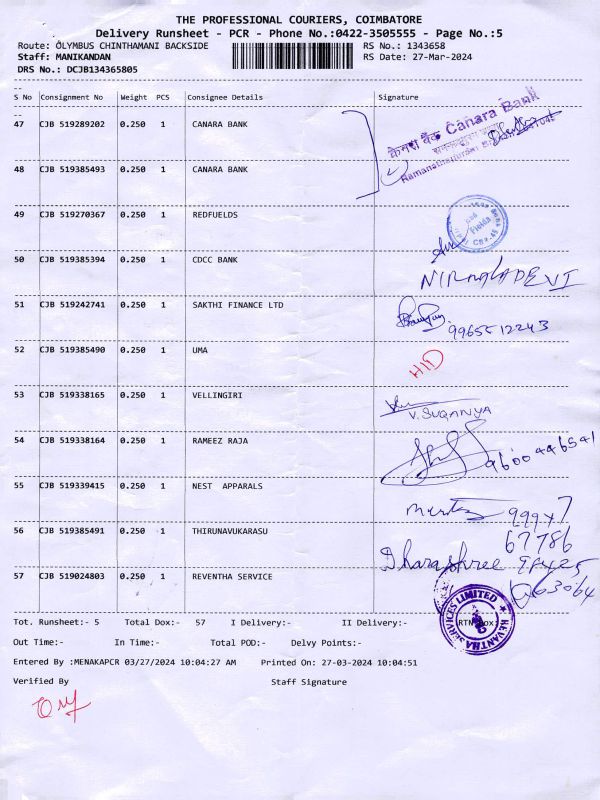 THE PROFESSIONAL COURIERS, COIMBATORE
Delivery Runsheet - PCR - Phone No.:0422-3505555 - Page No.:5
Route: OLYMBUS CHINTHAMANI BACKSIDE RS No.: 1343658
Staff: MANIKANDAN RS Date: 27-Mar-2024
DRS No.: DCJB134365805
S No Consignment No Weight PCS Consignee Details Signature
47 CJB 519289202 0.250 1 CANARA BANK
केनरा बैंक Canara Bank
48 CJB 519385493 0.250 1 CANARA BANK
49 CJB 519270367 0.250 1 REDFUELDS
50 CJB 519385394 0.250 1 CDCC BANK
NIRMALA DEVI
51 CJB 519242741 0.250 1 SAKTHI FINANCE LTD
9965512243
52 CJB 519385490 0.250 1 UMA
53 CJB 519338165 0.250 1 VELLINGIRI
V. SUGANYA
54 CJB 519338164 0.250 1 RAMEEZ RAJA
9600446541
55 CJB 519339415 0.250 1 NEST APPARALS
99947
67786
56 CJB 519385491 0.250 1 THIRUNAVUKARASU
Dharashree
57 CJB 519024803 0.250 1 REVENTHA SERVICE
REVANTHA SERVICES LIMITED
Tot. Runsheet:- 5 Total Dox:- 57 I Delivery:- II Delivery:- RTN Dox:
Out Time:- In Time:- Total POD:- Delvy Points:-
Entered By :MENAKAPCR 03/27/2024 10:04:27 AM Printed On: 27-03-2024 10:04:51
Verified By Staff Signature